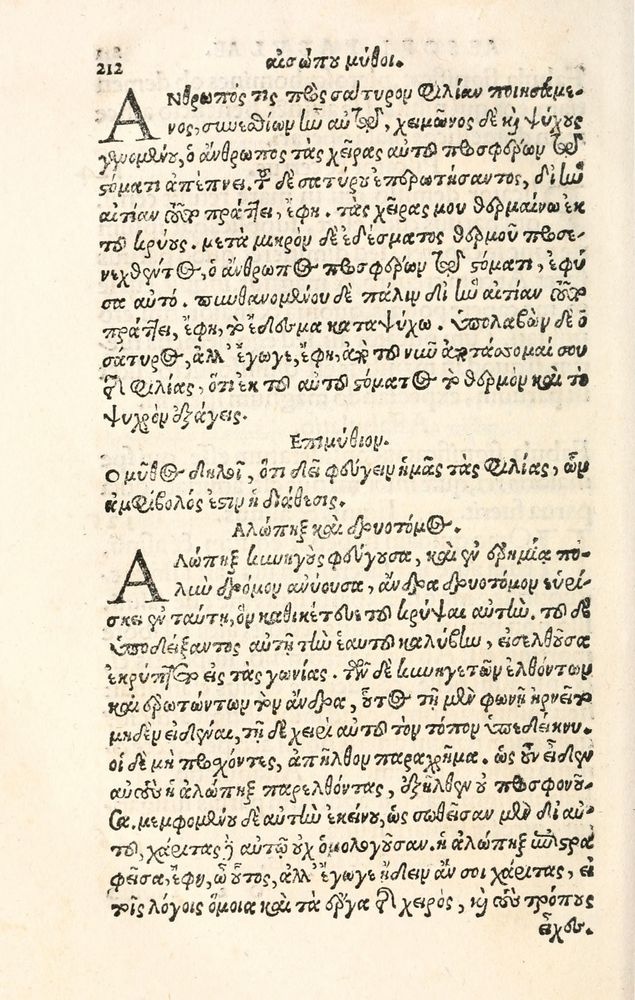 212
αἰσώπου μῦθοι.
ΑΝθρωπός τις πρὸς σάτυρον φιλίαν ποιησάμε-
νος, συνεσθίων ἦν αὐτῷ, χειμῶνος δὲ καὶ ψύχους
γενομένου, ὁ ἄνθρωπος τὰς χεῖρας αὐτοῦ προσφέρων τῷ
στόματι ἀπέπνει. τοῦ δὲ σατύρου ἐπερωτήσαντος, δι' ἣν
αἰτίαν τοῦτο πράττει, ἔφη. τὰς χεῖράς μου θερμαίνω ἐκ
τοῦ κρύους. μετὰ μικρὸν δὲ ἐδέσματος θερμοῦ προσε-
νεχθέντος, ὁ ἄνθρωπος προσφέρων τῷ στόματι, ἐφύ
σα αὐτό. πυνθανομένου δὲ πάλιν δι' ἣν αἰτίαν τοῦτο
πράττει, ἔφη, τὸ ἔδεσμα καταψύχω. ὑπολαβὼν δὲ ὁ
σάτυρος, ἀλλ' ἔγωγε, ἔφη, ἀπὸ τοῦ νῦν ἀποτάσσομαί σου
τῆς φιλίας, ὅτι ἐκ τοῦ αὐτοῦ στόματος τὸ θερμὸν καὶ τὸ
ψυχρὸν ἐξάγεις.
Επιμύθιον.
Ο μῦθος δηλοῖ, ὅτι δεῖ φεύγειν ἡμᾶς τὰς φιλίας, ὧν
ἀμφίβολός ἐστιν ἡ διάθεσις.
Αλώπηξ καὶ δρυοτόμος.
ΑΛώπηξ κυνηγοὺς φεύγουσα, καὶ ἐν ἐρημίᾳ πο-
λὺν δρόμον ἀνύουσα, ἄνδρα δρυοτόμον εὑρί-
σκει ἐν ταύτῃ, ὃν καθικέτευε τοῦ κρύψαι αὐτὴν. τοῦ δὲ
ὑποδείξαντος αὐτῇ τὴν ἑαυτοῦ καλύβην, εἰσελθοῦσα
ἐκρύπτετο εἰς τὰς γωνίας. τῶν δὲ κυνηγετῶν ἐλθόντων
καὶ ἐρωτώντων τὸν ἄνδρα, οὗτος τῇ μὲν φωνῇ ἠρνεῖτο
μηδὲν εἰδέναι, τῇ δὲ χειρὶ αὐτοῦ τὸν τόπον ὑπεδείκνυ.
οἱ δὲ μὴ προσχόντες, ἀπῆλθον παραχρῆμα. ὡς οὖν εἶδεν
αὐτοὺς ἡ ἀλώπηξ παρελθόντας, ἐξῆλθεν οὐ προσφωνοῦ-
σα. μεμφομένου δὲ αὐτὴν ἐκείνου, ὡς σωθεῖσαν μὲν δι' αὐ-
τοῦ, χάριτας δὲ αὐτῷ οὐχ ὁμολογοῦσαν. ἡ ἀλώπηξ ἐπιστρα
φεῖσα, ἔφη, ὦ οὗτος, ἀλλ' ἔγωγε ᾔδειν ἄν σοι χάριτας, εἰ
τοῖς λόγοις ὅμοια καὶ τὰ ἔργα τῆς χειρὸς, καὶ τοὺς τρόπους
εἶχες.